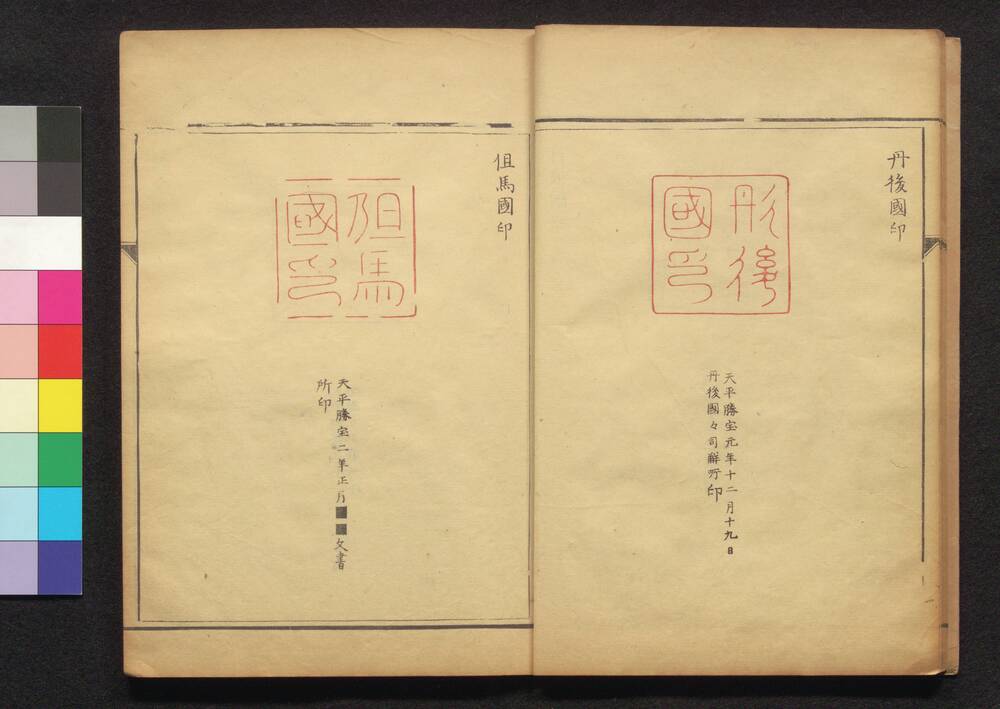 丹後國印
丹後
國印
天平勝宝元年十二月十九日
丹後國々司解所印
但馬國印
但馬
國印
天平勝宝二年正月■■文書
所印